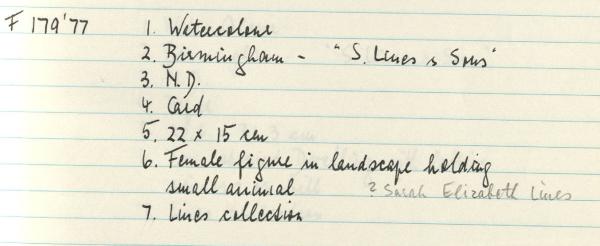 F 179'77
1. Watercolour
2. Birmingham - "S. Lines & Sons"
3. N.D.
4. Card
5. 22 x 15 cm
6. Female figure in landscape holding
small animal ? Sarah Elizabeth Lines
7. Lines collection